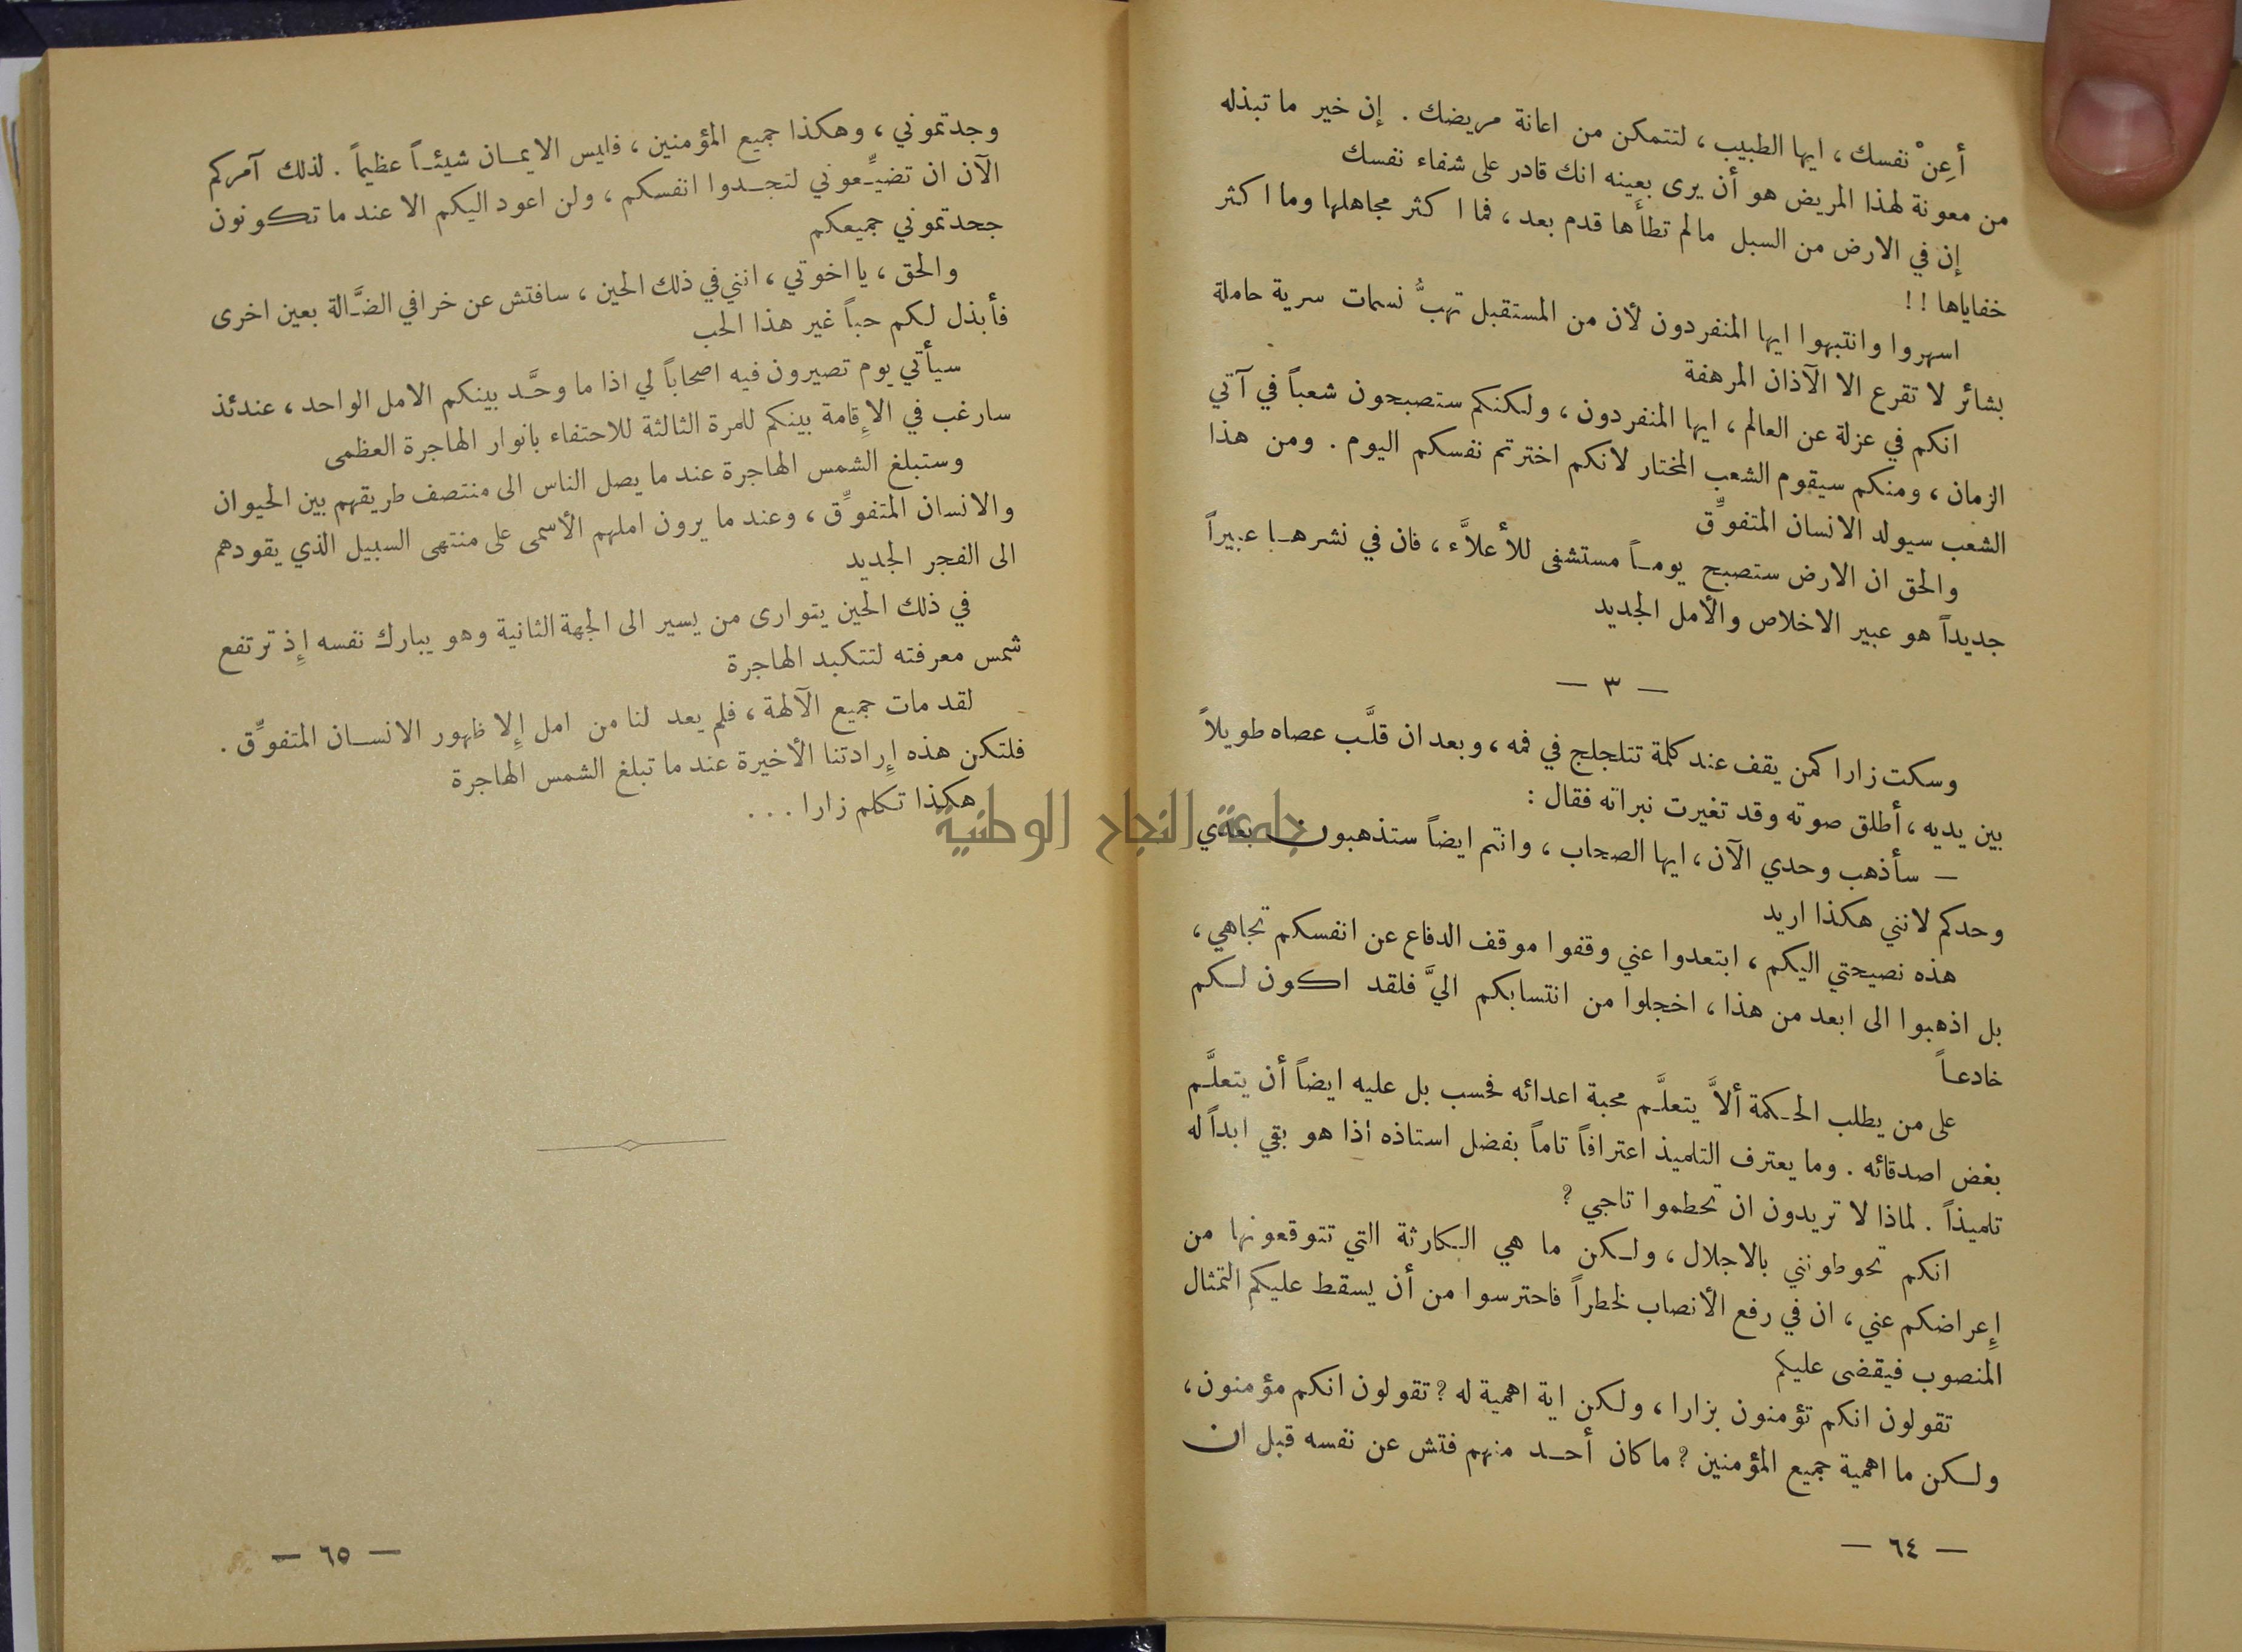 أَعِنْ نفسك ، ايها الطبيب ، لتتمكن من اعانة مريضك . إن خير ما تبذله
من معونة لهذا المريض هو أن يرى بعينه انك قادر على شفاء نفسك
إن في الارض من السبل مالم تطأها قدم بعد ، فما اكثر مجاهلها وما اكثر
خفاياها !!
اسهروا وانتبهوا ايها المنفردون لأن من المستقبل تهبُّ نسمات سرية حاملة
بشائر لا تقرع الا الآذان المرهفة
انكم في عزلة عن العالم ، ايها المنفردون ، ولكنكم ستصبحون شعباً في آتي
الزمان ، ومنكم سيقوم الشعب المختار لانكم اخترتم نفسكم اليوم . ومن هذا
الشعب سيولد الانسان المتفوِّق
والحق ان الارض ستصبح يوماً مستشفى للأعلاَّء ، فان في نشرها عبيراً
جديداً هو عبير الاخلاص والأمل الجديد
— ٣ —
وسكت زارا كمن يقف عند كلمة تتلجلج في فمه ، وبعد ان قلَّب عصاه طويلاً
بين يديه ، أطلق صوته وقد تغيرت نبراته فقال :
— سأذهب وحدي الآن ، ايها الصحاب ، وانتم ايضاً ستذهبون بعدي
وحدكم لانني هكذا اريد
هذه نصيحتي اليكم ، ابتعدوا عني وقفوا موقف الدفاع عن انفسكم تجاهي ،
بل اذهبوا الى ابعد من هذا ، اخجلوا من انتسابكم اليَّ فلقد اكون لكم
خادعاً
على من يطلب الحكمة ألاَّ يتعلَّم محبة اعدائه فحسب بل عليه ايضاً أن يتعلَّم
بغض اصدقائه . وما يعترف التلميذ اعترافاً تاماً بفضل استاذه اذا هو بقي ابداً له
تلميذاً . لماذا لا تريدون ان تحطموا تاجي ؟
انكم تحوطونني بالاجلال ، ولكن ما هي الكارثة التي تتوقعونها من
إعراضكم عني ، ان في رفع الأنصاب لخطراً فاحترسوا من أن يسقط عليكم التمثال
المنصوب فيقضى عليكم
تقولون انكم تؤمنون بزارا ، ولكن اية اهمية له ؟ تقولون انكم مؤمنون ،
ولكن ما اهمية جميع المؤمنين ؟ ما كان أحد منهم فتش عن نفسه قبل ان
— ٦٤ —
وجدتموني ، وهكذا جميع المؤمنين ، فليس الايمان شيئاً عظيماً . لذلك آمركم
الآن ان تضيِّعوني لتجدوا انفسكم ، ولن اعود اليكم الا عند ما تكونون
جحدتموني جميعكم
والحق ، يا اخوتي ، انني في ذلك الحين ، سافتش عن خرافي الضَّالة بعين اخرى
فأبذل لكم حباً غير هذا الحب
سيأتي يوم تصيرون فيه اصحاباً لي اذا ما وحَّد بينكم الامل الواحد ، عندئذ
سارغب في الإقامة بينكم للمرة الثالثة للاحتفاء بانوار الهاجرة العظمى
وستبلغ الشمس الهاجرة عند ما يصل الناس الى منتصف طريقهم بين الحيوان
والانسان المتفوِّق ، وعند ما يرون املهم الأسمى على منتهى السبيل الذي يقودهم
الى الفجر الجديد
في ذلك الحين يتوارى من يسير الى الجهة الثانية وهو يبارك نفسه إذ ترتفع
شمس معرفته لتتكبد الهاجرة
لقد مات جميع الآلهة ، فلم يعد لنا من امل إلا ظهور الانسان المتفوِّق .
فلتكن هذه إرادتنا الأخيرة عند ما تبلغ الشمس الهاجرة
هكذا تكلم زارا . . .
— ٦٥ —
جامعة النجاح الوطنية